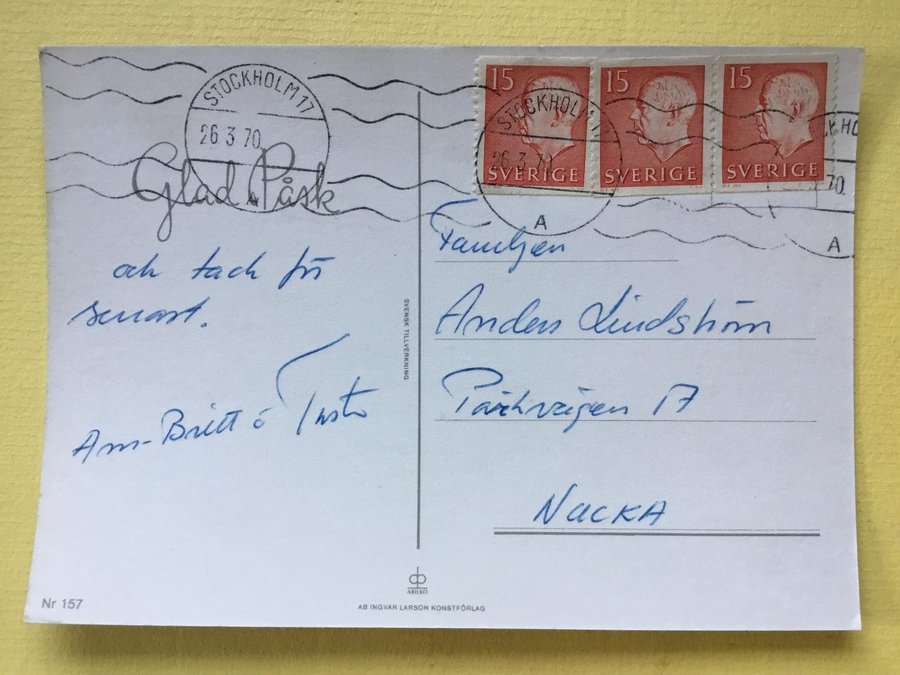 STOCKHOLM 17
26.3.70
15
SVERIGE
15
SVERIGE
15
SVERIGE
STOCKHOLM 17
26.3.70
A
70
A
Glad Påsk
och tack för
senast.
Ann-Britt o
Familjen
Anders Lindström
17
NACKA
SVENSK TILLVERKNING
Nr 157
AB INGVAR LARSON KONSTFÖRLAG